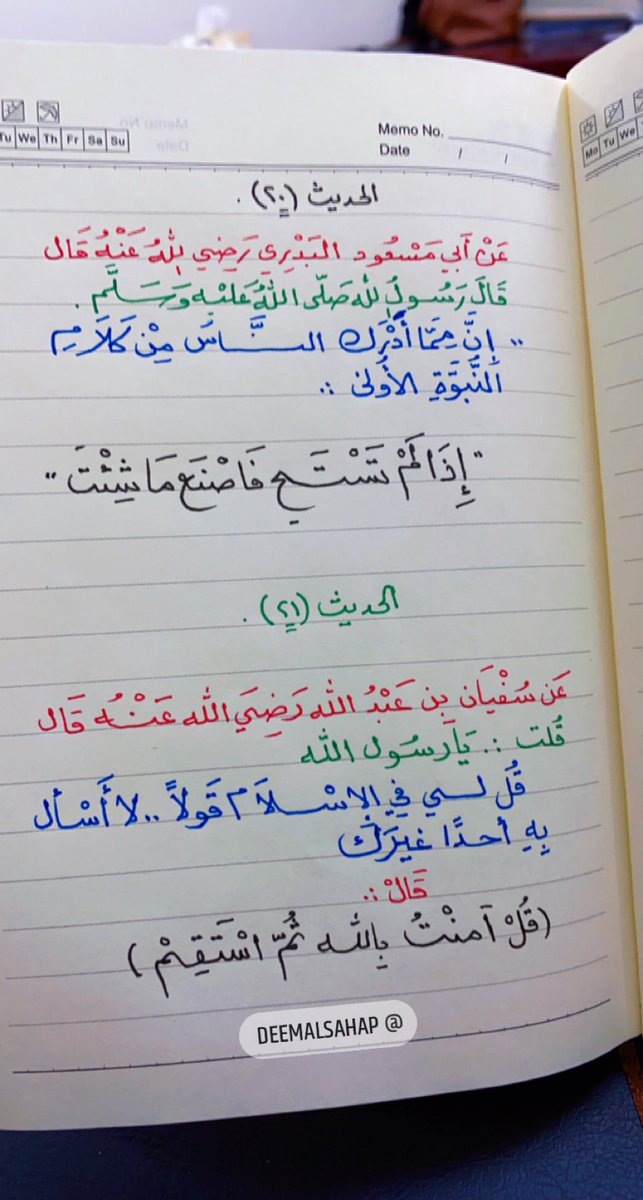 Memo No.
Date / /
Tu We Th Fr Sa Su
Mo Tu We
الحديث (٢٠) .
عَنْ أَبي مَسْعُود البَدْرِي رَضِي اللهُ عَنْهُ قَال
قَالَ رَسُولُ الله صَلّى اللهُ عَلَيْهِ وَسَلَّم .
" إِنَّ مِمَّا أَدْرَك النَّاسُ مِنْ كَلَامِ
النُّبُوَّةِ الأُولى :.
" إِذَا لَمْ تَسْتَحِ فَاصْنَع مَا شِئْتَ "
الحديث (٢١) .
عَن سُفْيَان بِن عَبْدُ الله رَضِيَ الله عَنْهُ قَال
قُلت :. يَا رسُول الله
قُل لي فِي الإسْلَام قَولاً .. لا أَسْأل
بِهِ أحدًا غيرَك
قَالْ :.
(قُلْ آمنْتُ بِالله ثُمّ اسْتَقِمْ )
DEEMALSAHAP @